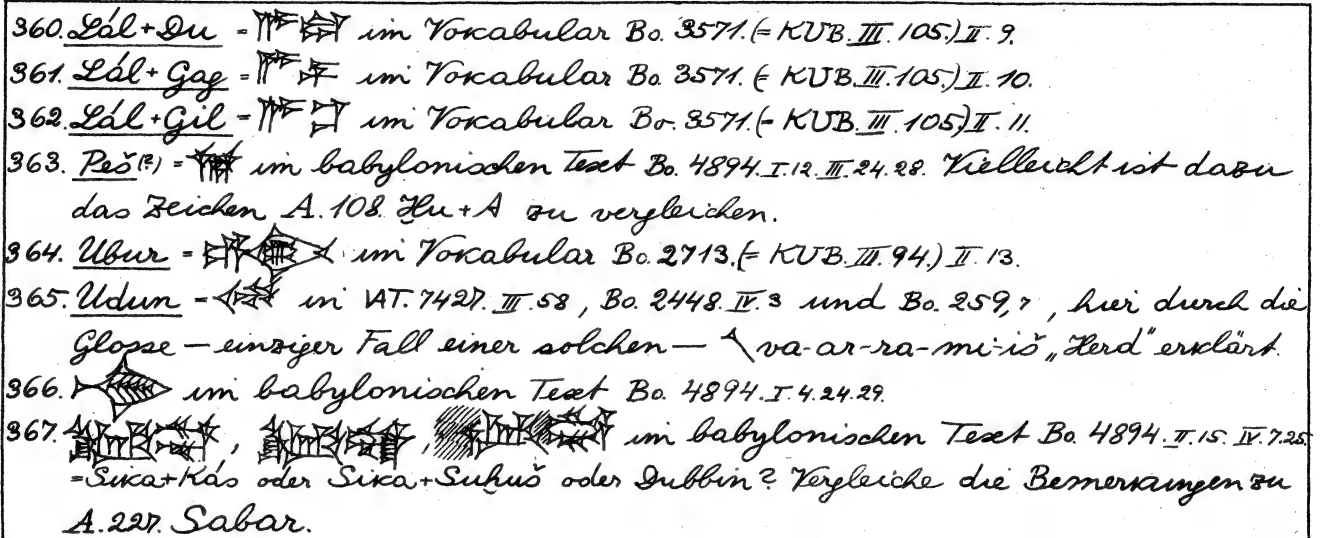 360. Lál+Du = im Vokabular Bo. 3571. (= KUB. III. 105.) II. 9.
361. Lál+Gag = im Vokabular Bo. 3571. (= KUB. III. 105.) II. 10.
362. Lál+Gil = im Vokabular Bo. 3571. (= KUB. III. 105) II. 11.
363. Peš(?) = im babylonischen Text Bo. 4894. I. 12. III. 24. 28. Vielleicht ist dazu
das Zeichen A. 108. Ḫu+A zu vergleichen.
364. Ubur = im Vokabular Bo. 2713. (= KUB. III. 94.) II. 13.
365. Udun = in VAT. 7427. III. 58, Bo. 2448. IV. 3 und Bo. 259,7, hier durch die
Glosse — einziger Fall einer solchen — va-ar-ra-mi-iš „Herd" erklärt.
366. im babylonischen Text Bo. 4894. I. 4. 24. 29.
367. , , im babylonischen Text Bo. 4894. II. 15. IV. 7. 25.
= Sika+Kás oder Sika+Suḫuš oder Dubbin? Vergleiche die Bemerkungen zu
A. 227. Sabar.